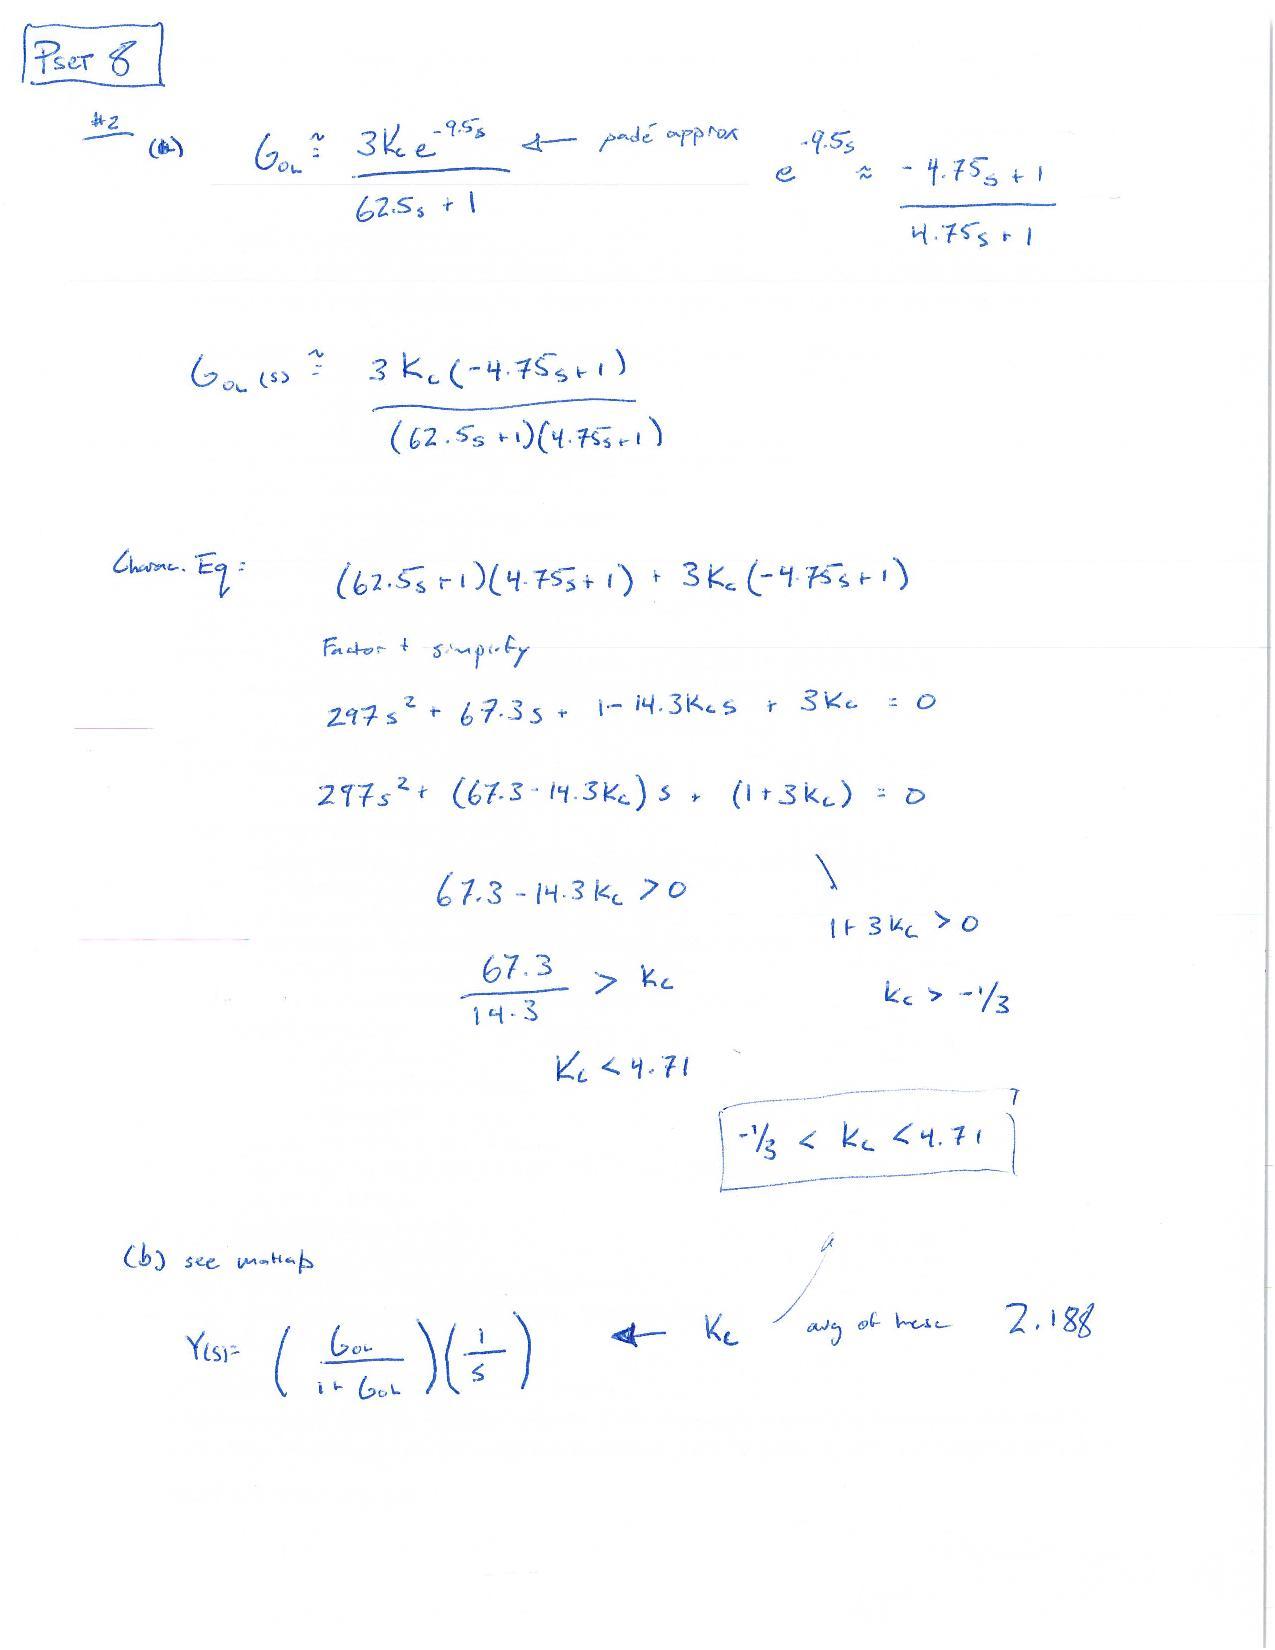 Pset 8
#2
(a) G_OL ≅ 3Kc e^-9.5s / 62.5s + 1 ← padé approx e^-9.5s ≈ -4.75s + 1 / 4.75s + 1
G_OL(s) ≅ 3Kc(-4.75s+1) / (62.5s+1)(4.75s+1)
Charac. Eq: (62.5s+1)(4.75s+1) + 3Kc(-4.75s+1)
Factor + simplify
297s² + 67.3s + 1 - 14.3Kcs + 3Kc = 0
297s² + (67.3-14.3Kc)s + (1+3Kc) = 0
67.3-14.3Kc > 0
1+3Kc > 0
67.3 / 14.3 > Kc
Kc > -1/3
Kc < 4.71
-1/3 < Kc < 4.71
(b) see matlab
Y(s) = (G_OL / 1+G_OL)(1/s) ← Kc avg of these 2.188